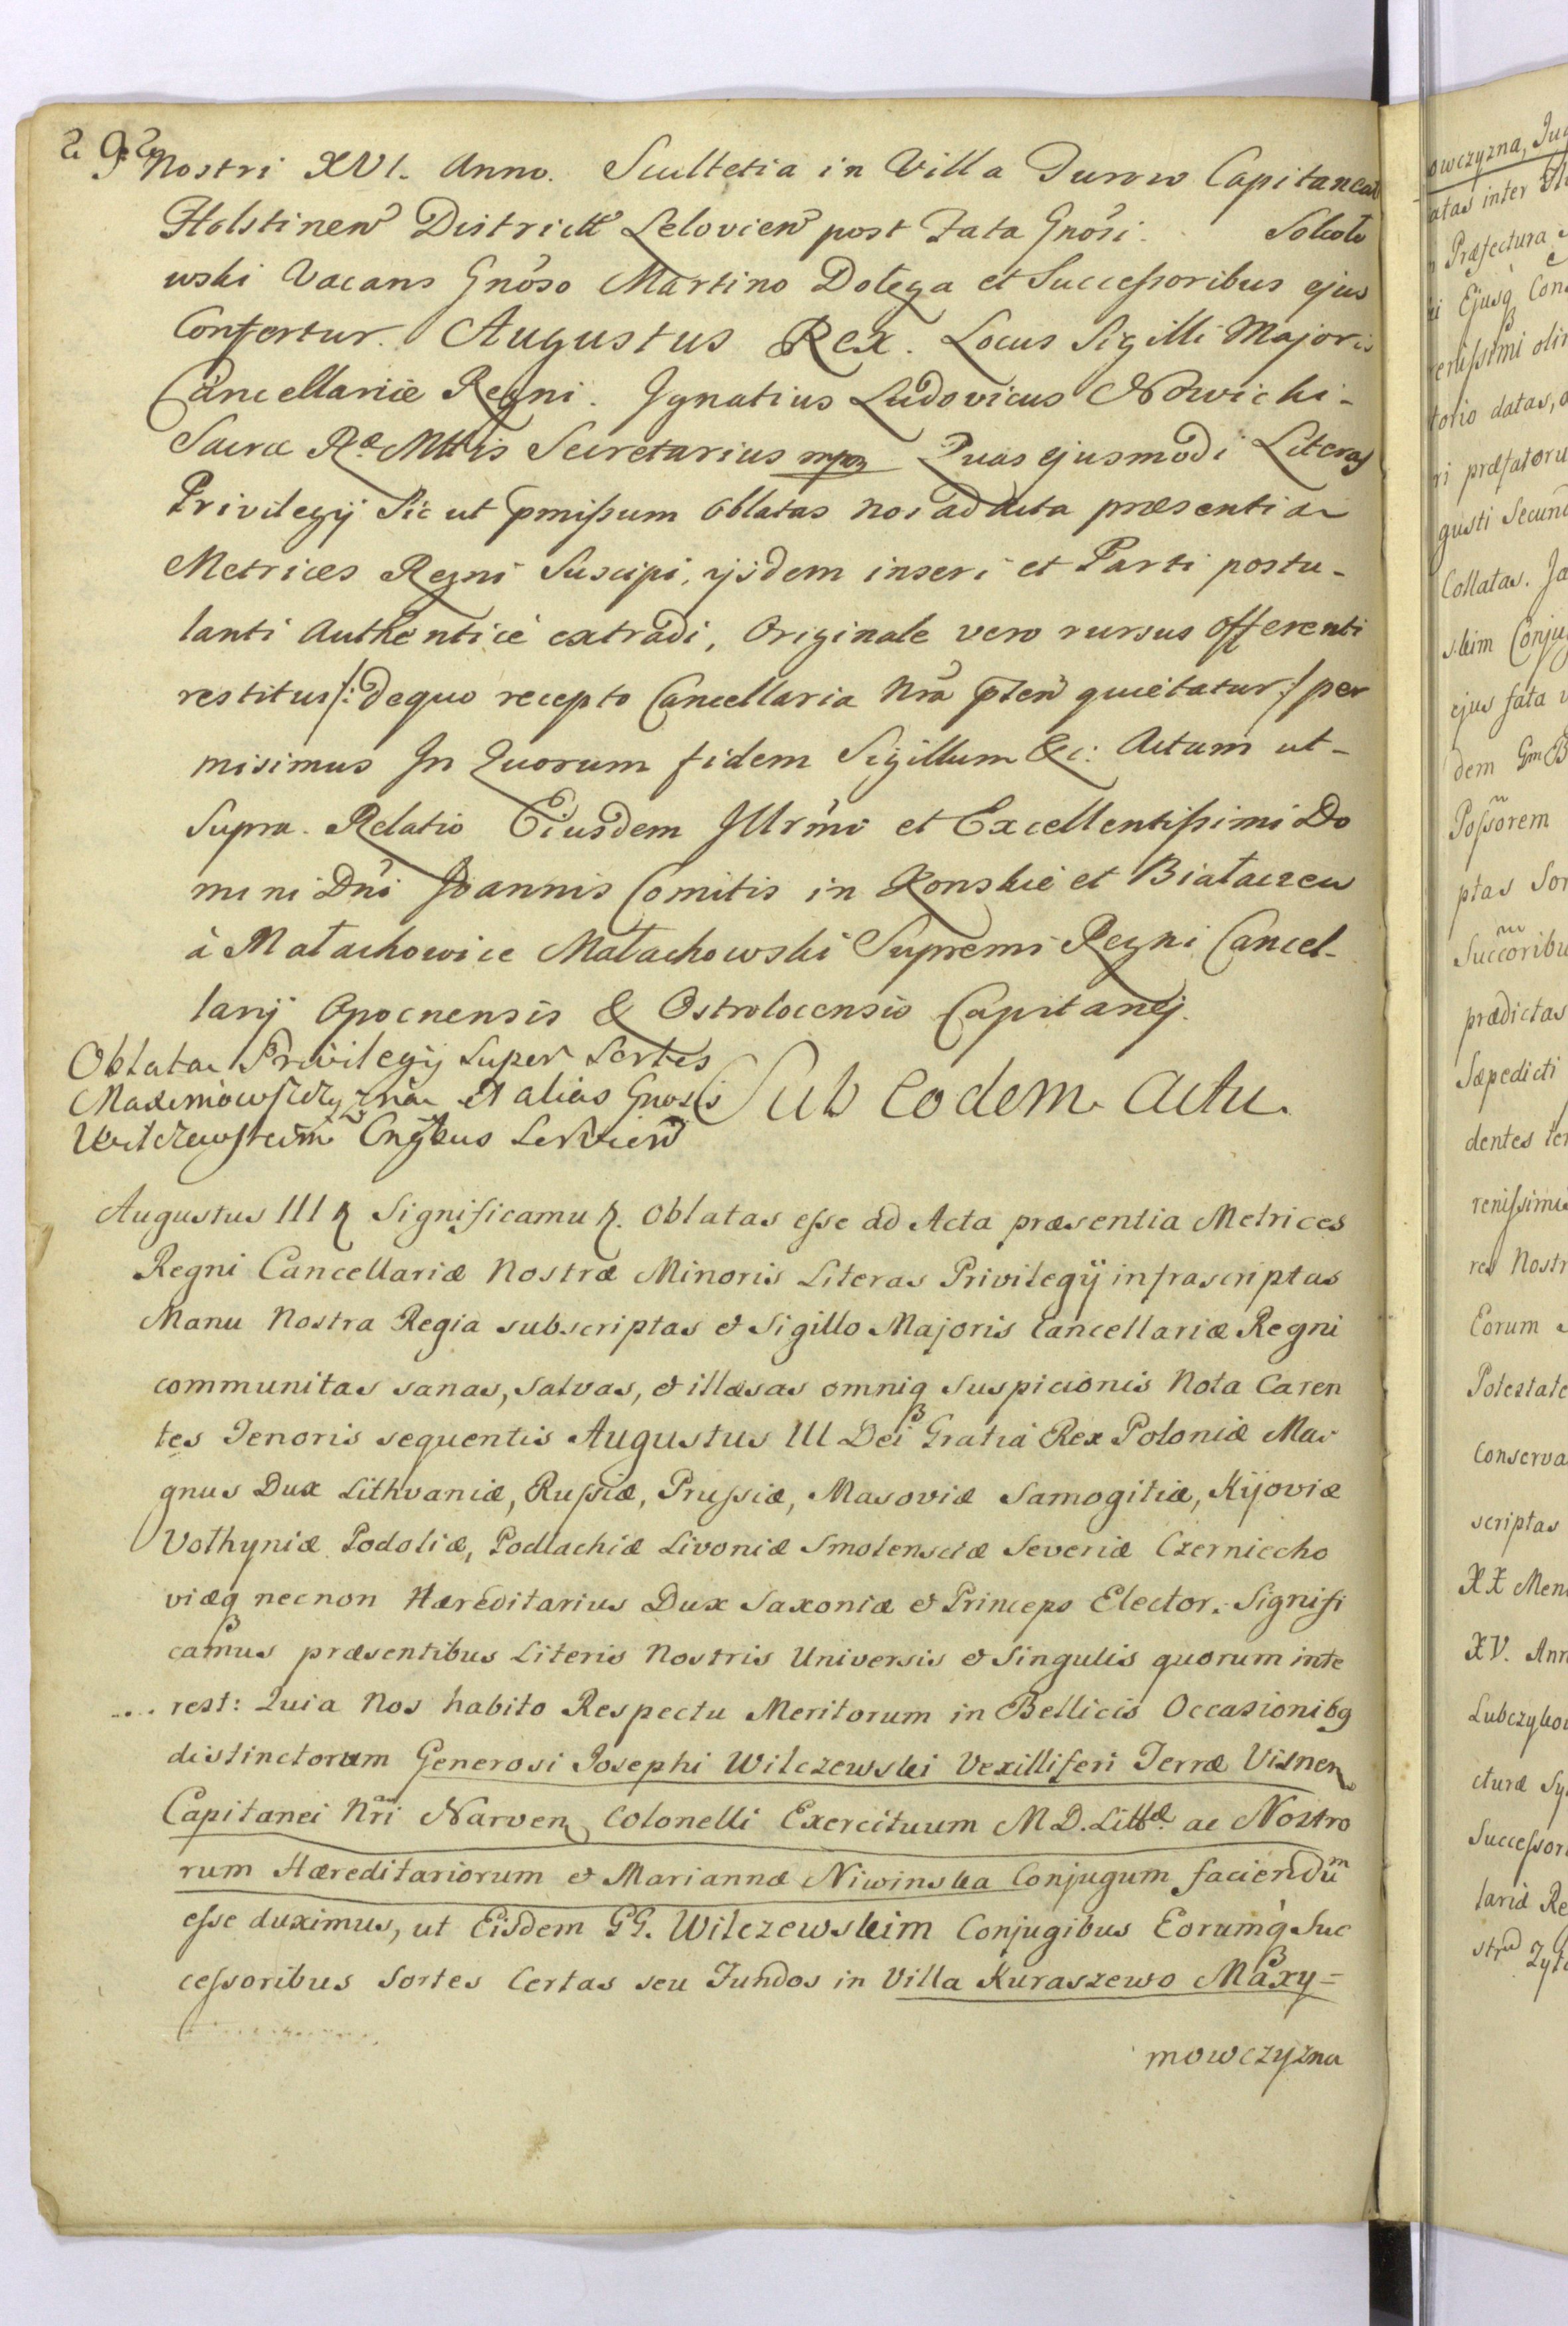 292
Nostri XVI. Anno. Scultetia in Villa Turow Capitaneat
Holstinen Districtt Lelovien post Fata Gnosi. Sokoło
wski Vacans Gnoso Martino Dołega et Succeſsoribus ejus
Confertur. Augustus Rex. Locus Sigilli Majoris
Cancellariæ Regni. Ignatius Ludovicus Nowicki-
Sacræ Ræ Mttis Secretarius mpa Quas ejusmodi Literas
Privilegij Sic ut pmiſsum oblatas nos ad Acta præsentia
Metrices Regni Suscipi, ijsdem inseri et Parti postu-
lanti Authenticè extradi, Originale vero rursus offerenti
restitui /: de quo recepto Cancellaria Nra pten quietatur :/ per
misimus In Quorum fidem Sigillum &c: Actum ut-
Supra. Relatio Ejusdem Illrmi et Excellentiſsimi Do
mini Dni Joannis Comitis in Konskie et Białaczew
à Małachowice Małachowski Supremi Regni Cancel-
larij Opocnensis & Ostrolecensis Capitanej.
Oblata Privilegij Super Sortes
Maximowszczyzna et alias Gnosis
Wilczewskim Cnjbus Servien
Sub eodem Actu.
Augustus III Significamu. Oblatas eſse ad Acta præsentia Metrices
Regni Cancellariæ Nostræ Minoris Literas Privilegij infrascriptas
Manu Nostra Regia subscriptas & Sigillo Majoris Cancellariæ Regni
communitas sanas, salvas, & illæsas omniq Suspicionis Nota Caren
tes Tenoris sequentis Augustus III Dei Gratia Rex Poloniæ Ma
gnus Dux Lithvaniæ, Ruſsiæ, Pruſsiæ, Masoviæ Samogitiæ, Kijoviæ
Vołhyniæ Podoliæ, Podlachiæ Livoniæ Smolensciæ Severiæ Czerniecho
viæq necnon Hæreditarius Dux Saxoniæ & Princeps Elector. Signifi
camus præsentibus Literis Nostris Universis & Singulis quorum inte
.... rest: Quia Nos habito Respectu Meritorum in Bellicis Occasionibg
distinctorum Generosi Josephi Wilczewski Vexilliferi Terræ Visnen
Capitanei Nri Narven Colonelli Exercituum M. D. Littæ. ac Nostro
rum Hæreditariorum & Mariannæ Niwinska Conjugum faciendum
eſse duximus, ut Eisdem GG. Wilczewskim Conjugibus Eorumq Suc
ceſsoribus Sortes Certas seu Fundos in Villa Kuraszewo Maxy=
mowczyzna
owczyzna,
atas inter
Præfectura
Ejusq
eniſsimi
torio datas,
ri præfatoru
gusti Secund
Collatas. Ja
skim Conju
ejus fata
dem Gm
Poſsorem
ptas Sor
Succoribu
prædictas
Sæpedicti
dentes
reniſsimi
res Nostr
Eorum
Potestate
conserva
scriptas
XX Men
XV. Ann
Lubczyko
cturæ Sy
Succeſsor
lariæ Re